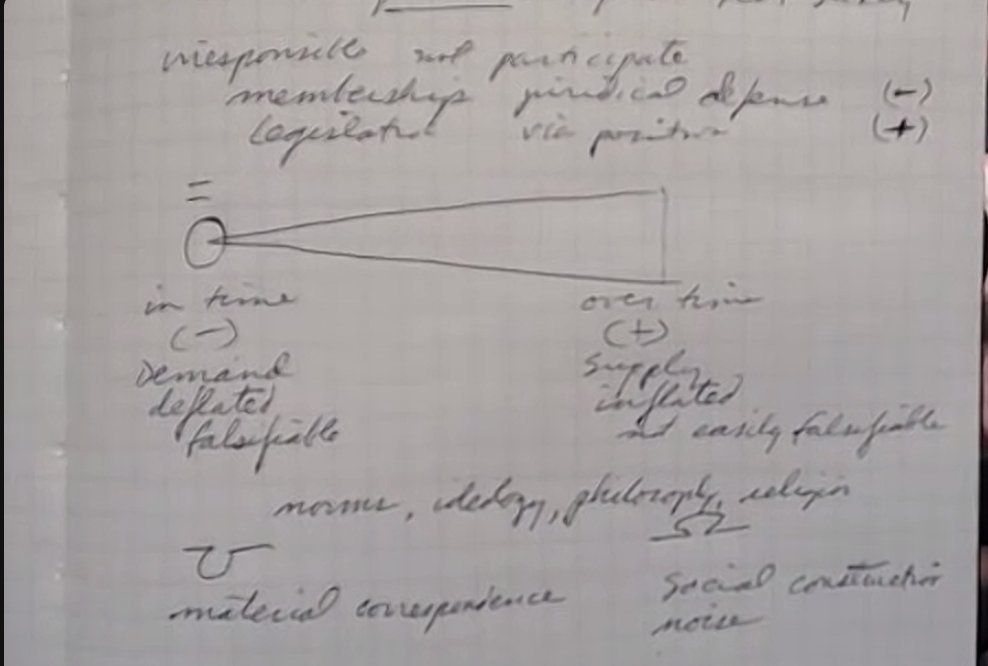 irresponsible not participate
membership juridical defense (-)
legislator via positiva (+)
=
in time over time
(-) (+)
Demand Supply
deflated inflated
falsifiable not easily falsifiable
norms, ideology, philosophy, religion
Ω
material correspondence social construction
noise